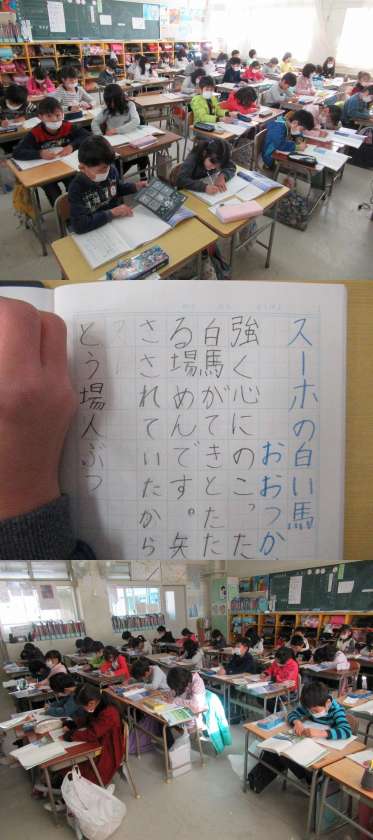 スーホの白い馬
おおつか
強く心にのこった
白馬がてきとたた
る場めんです。矢
さされていたから
とう場人ぶつ